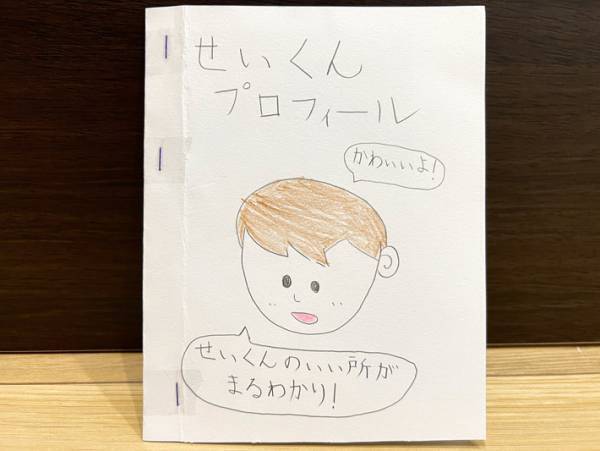 せいくん
プロフィール
かわいいよ!
せいくんのいい所が
まるわかり!